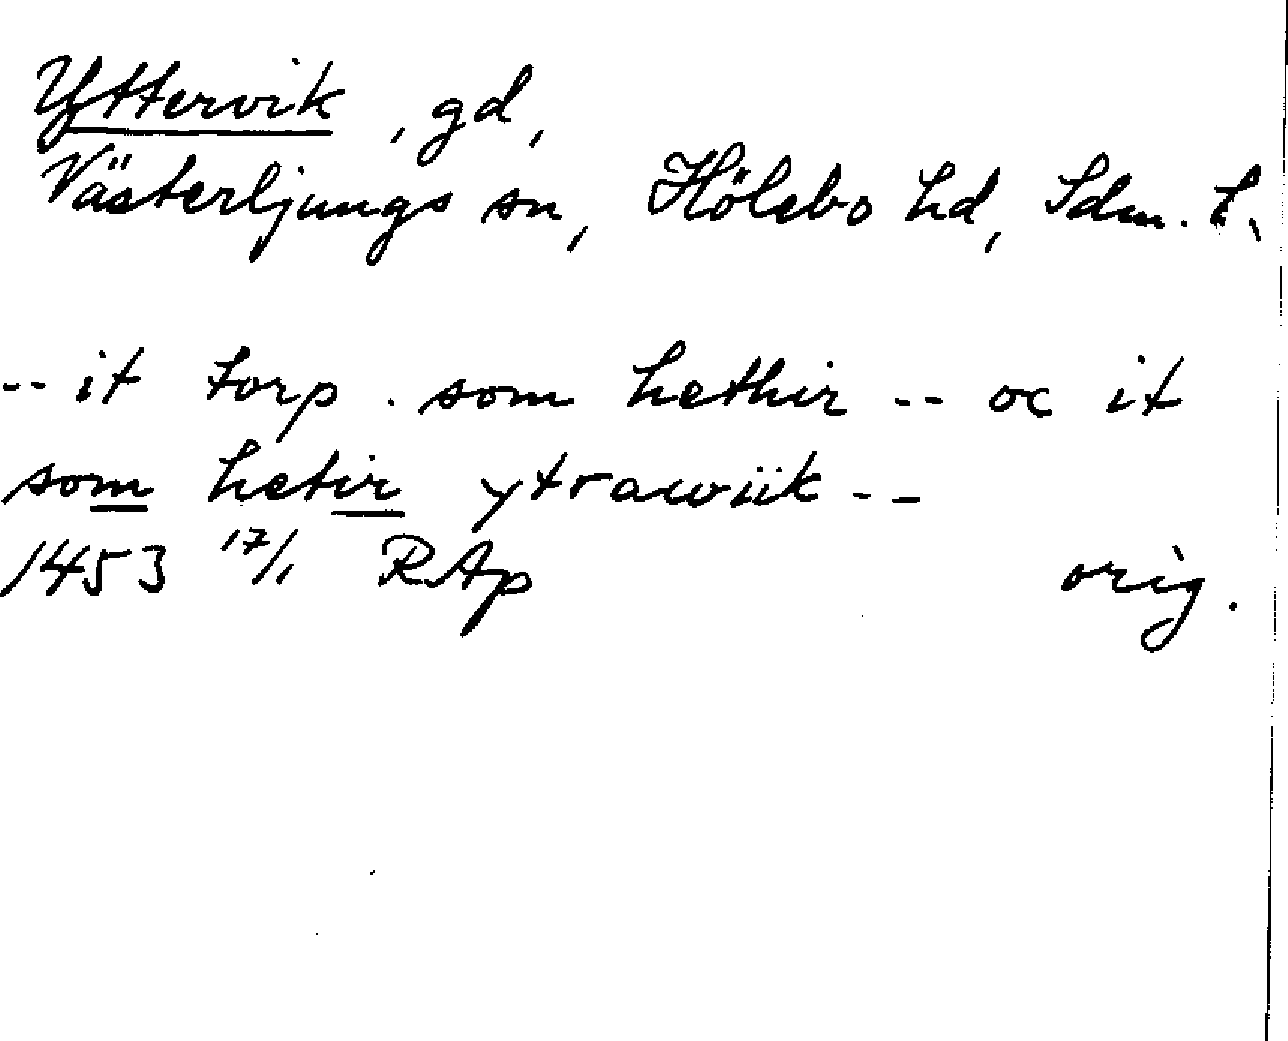 Yttervik, gd,
Västerljungs sn, Hölebo hd, Sdm. l.
-- it torp. som hethir -- oc it
som hetir ytrawiik --
1453 17/1 RAp orig.